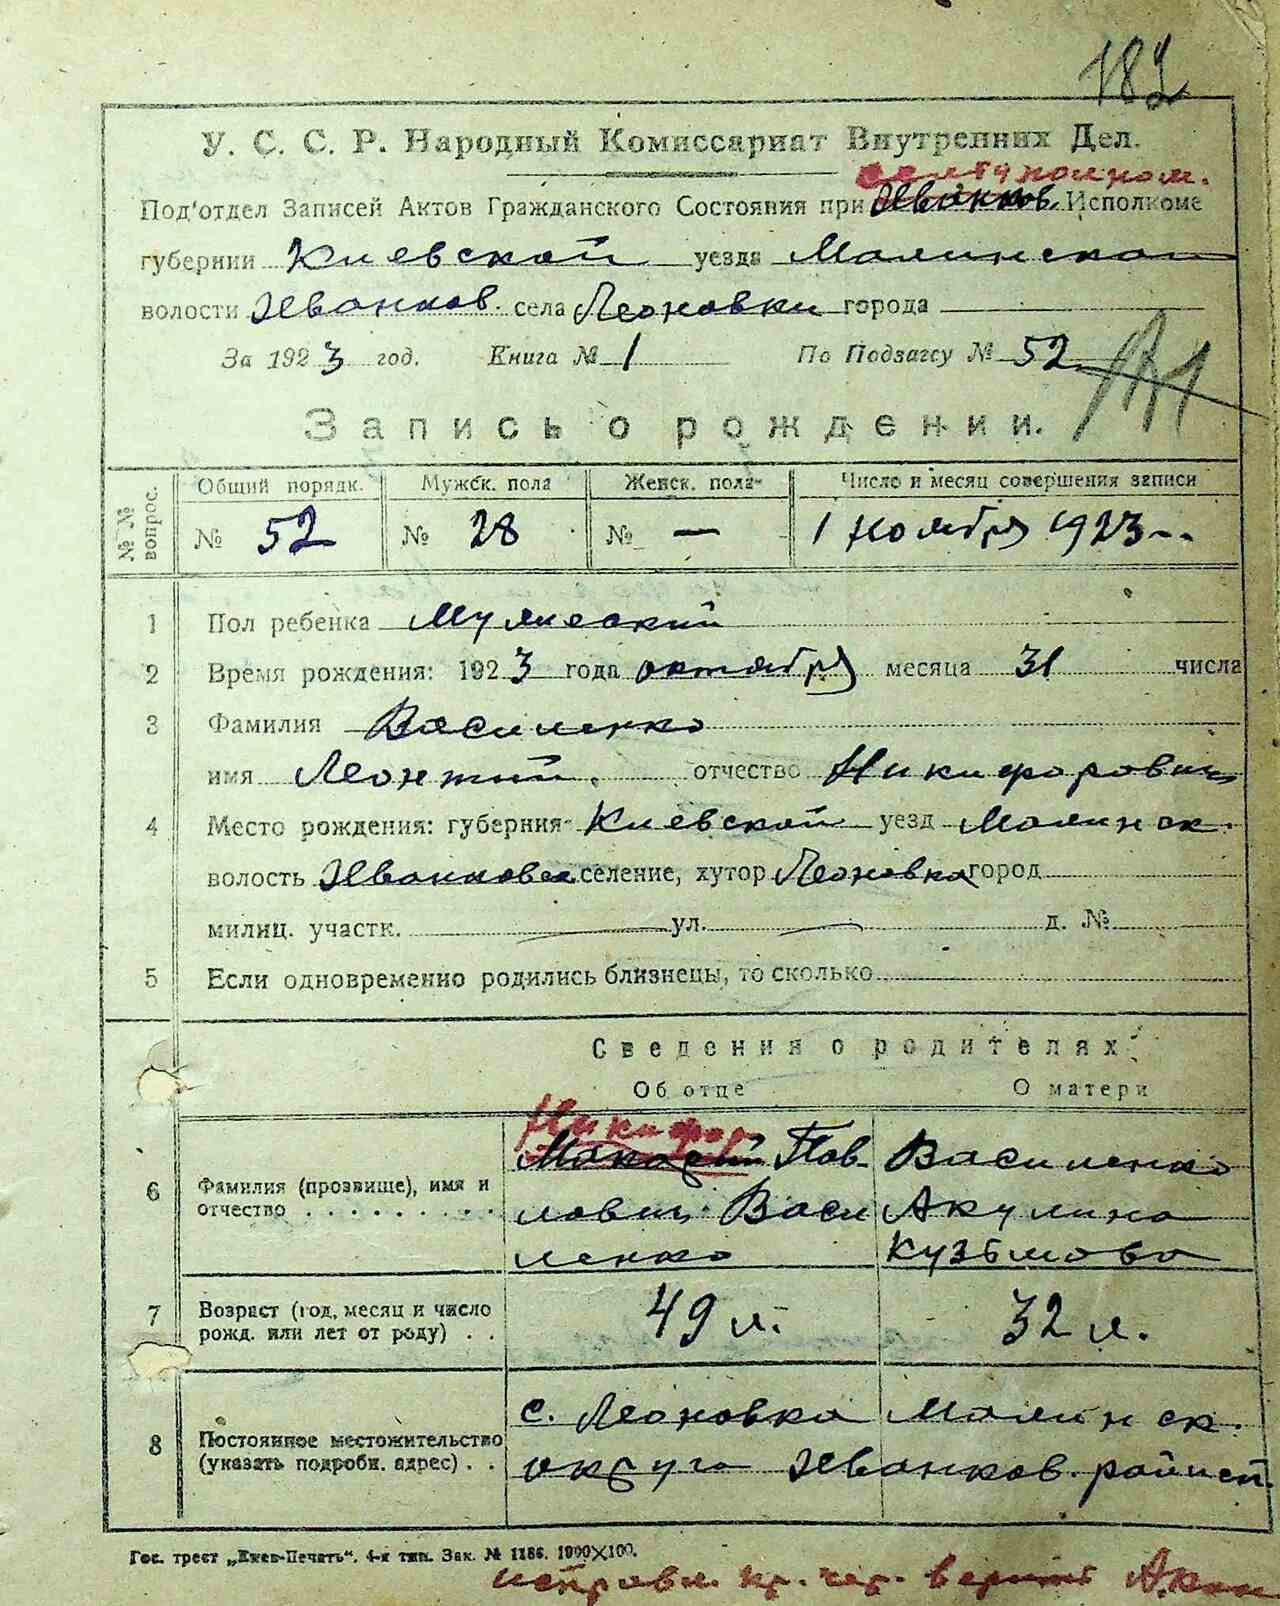 182
У. С. С. Р. Народный Комиссариат Внутренних Дел.
Под'отдел Записей Актов Гражданского Состояния при Иванков. Исполкоме
губернии Киевской уезда Малинской
волости Иванков. села Леоновки города
За 1923 год. Книга № 1 По Подзагсу № 52
Запись о рождении.
№ № вопрос. Общий порядк. Мужск. пола Женск. пола Число и месяц совершения записи
№ 52 № 28 № — 1 ноября 1923
1 Пол ребенка Мужеский
2 Время рождения: 1923 года октября месяца 31 числа
3 Фамилия Василенко
имя Леонтий. отчество Никифорович
4 Место рождения: губерния Киевской уезд Малинск.
волость Иванковск селение, хутор Леоновка город
милиц. участк. — ул. — д. №
5 Если одновременно родились близнецы, то сколько
Сведения о родителях:
Об отце О матери
Никифор
6 Фамилия (прозвище), имя и Макарий Пав- Василенко
отчество . . . . . . . . . лович Васи Акулина
ленко Кузьмова
7 Возраст (год, месяц и число 49 л. 32 л.
рожд. или лет от роду) . .
8 с. Леоновка Малинск.
Постоянное местожительство
(указать подробн. адрес) . . округа Иванков. райисп.
Гос. трест „Киев-Печать“. 4-я тип. Зак. № 1186. 1000×100.
исправл. кр. чер. верить